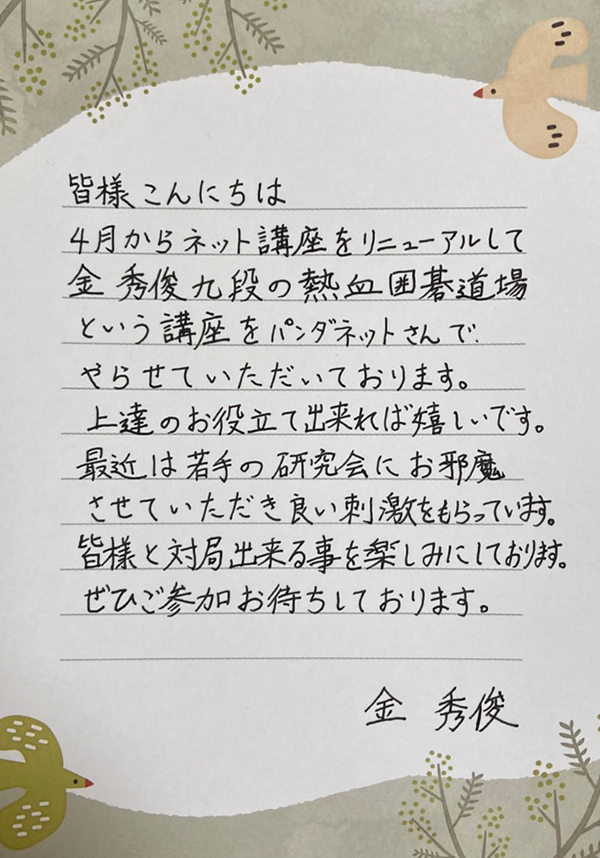 皆様こんにちは
4月からネット講座をリニューアルして
金 秀俊九段の熱血囲碁道場
という講座をパンダネットさんで
やらせていただいております。
上達のお役立て出来れば嬉しいです。
最近は若手の研究会にお邪魔
させていただき良い刺激をもらっています。
皆様と対局出来る事を楽しみにしております。
ぜひご参加お待ちしております。
金 秀俊